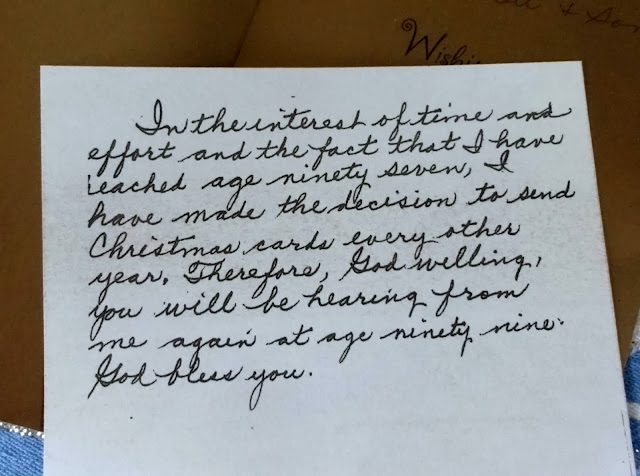 Wishi
In the interest of time and
effort and the fact that I have
reached age ninety seven, I
have made the decision to send
Christmas cards every other
year. Therefore, God willing,
you will be hearing from
me again at age ninety nine.
God bless you.